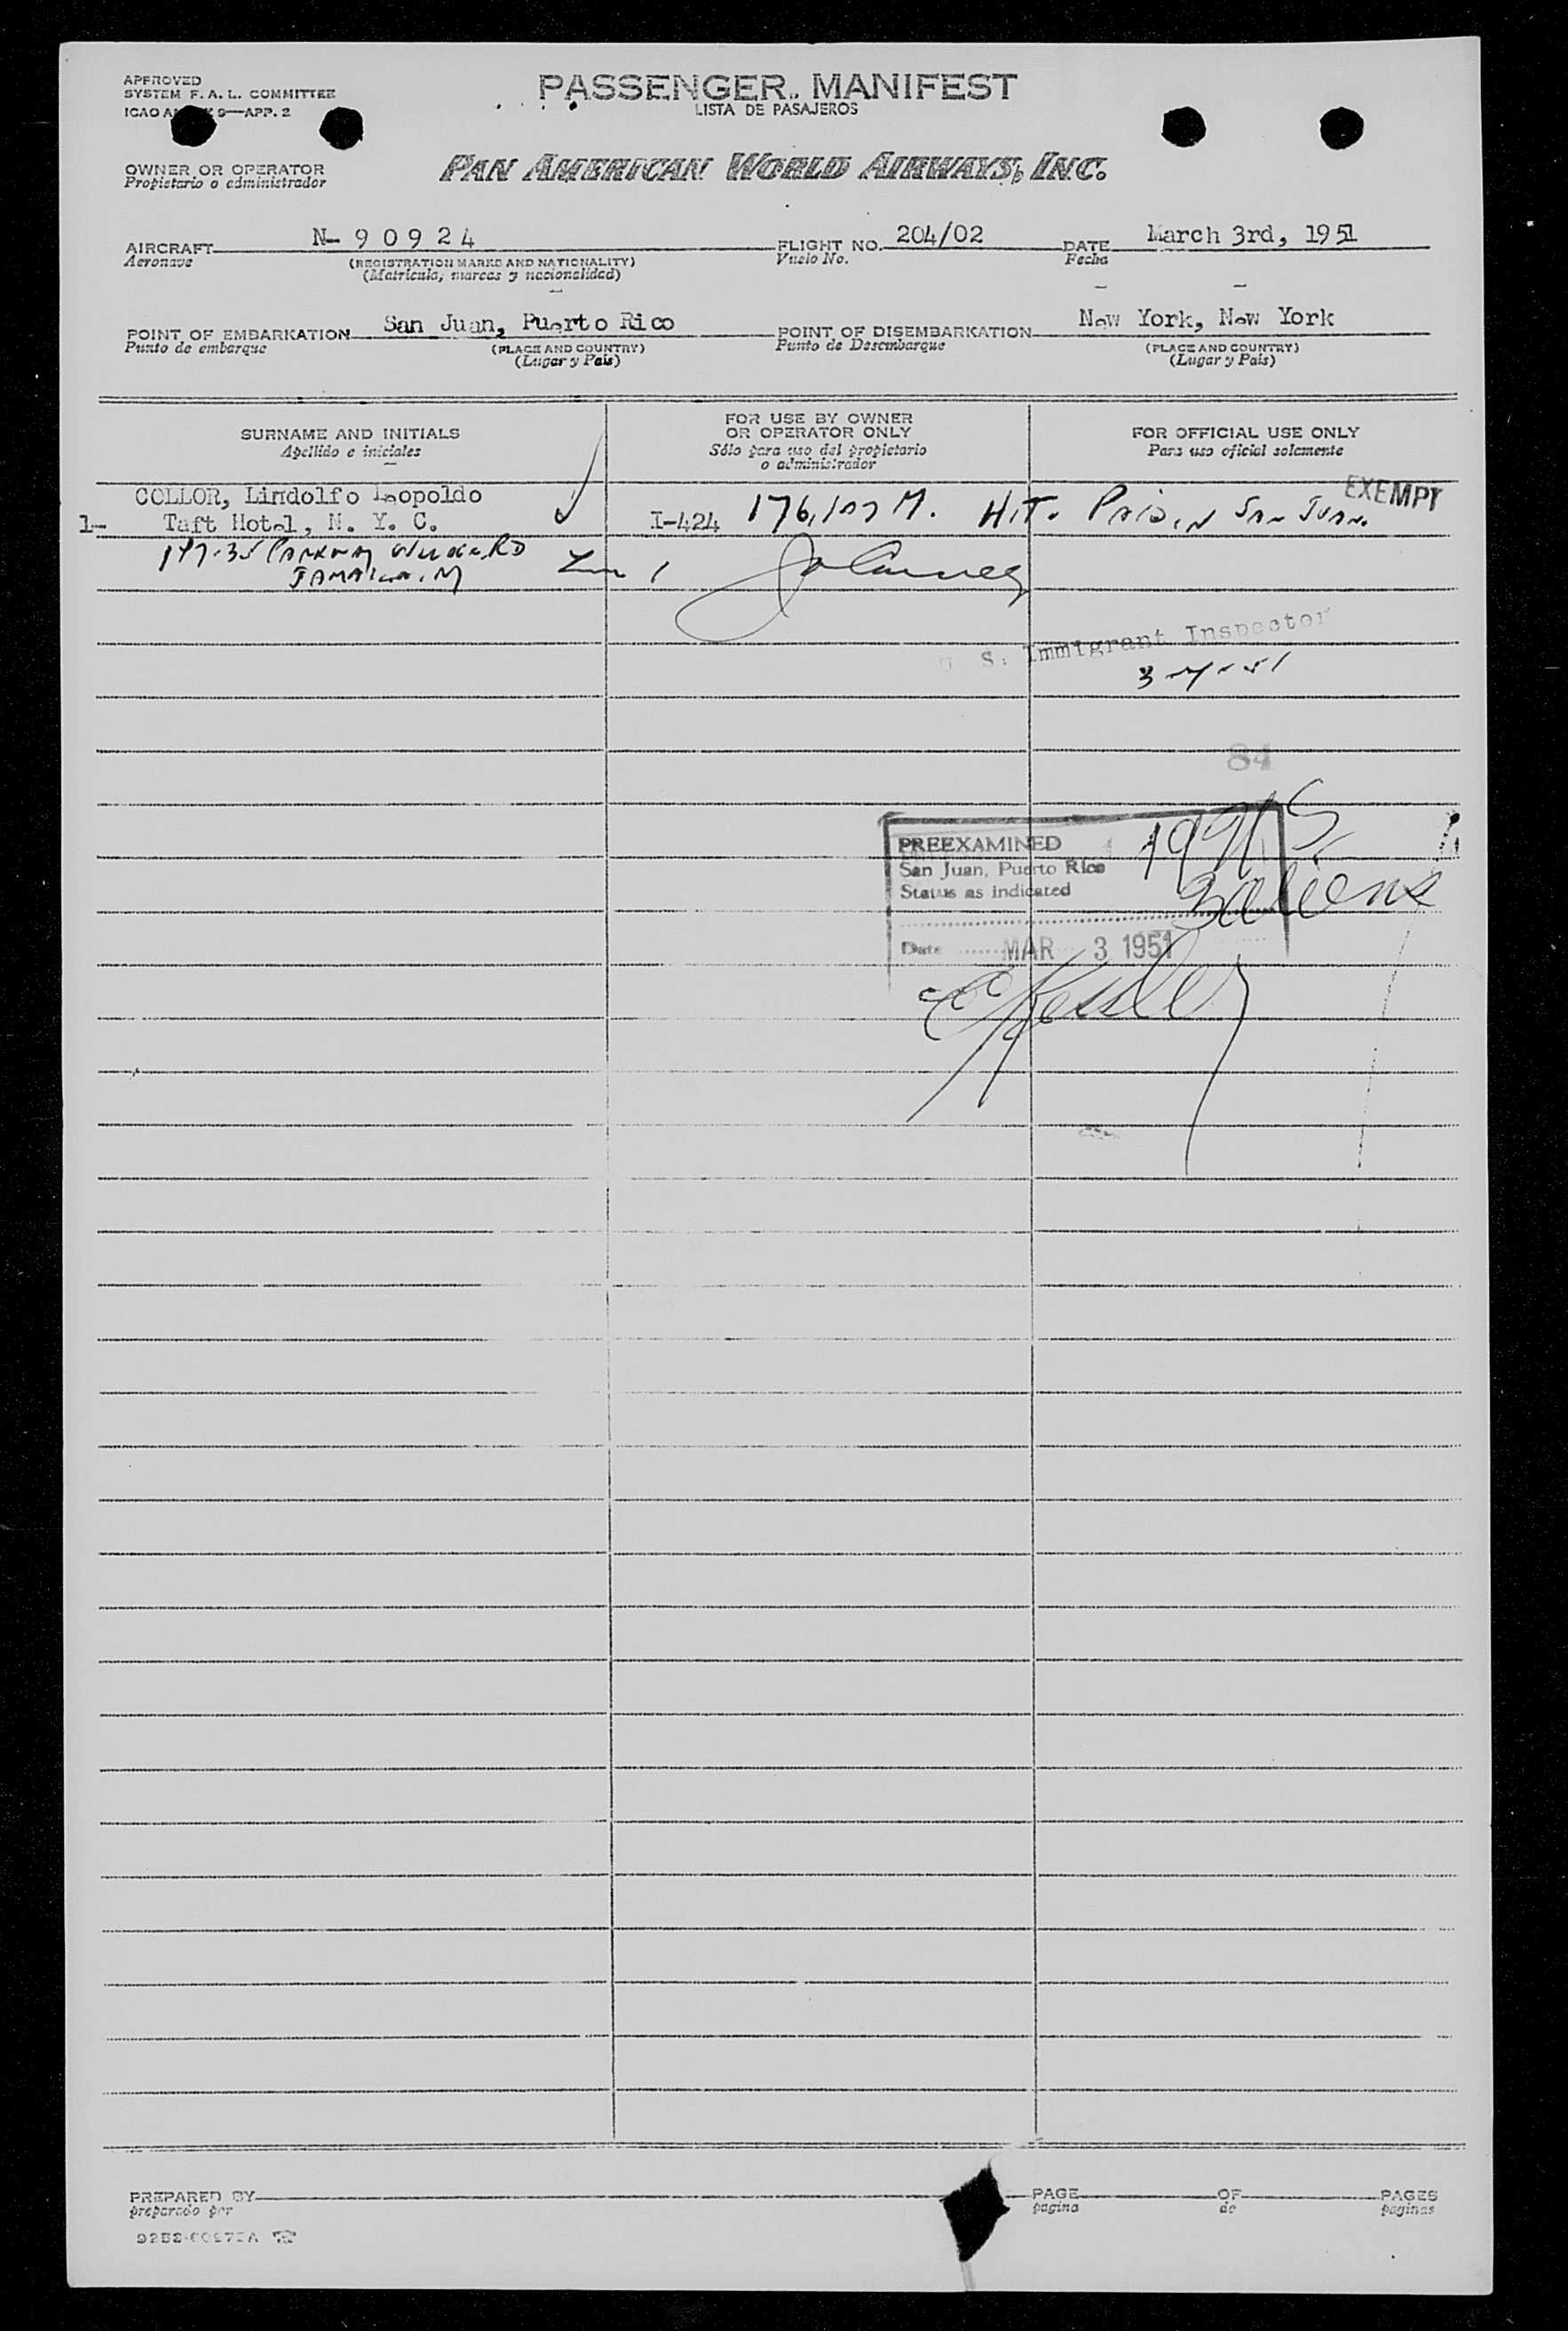 APPROVED
SYSTEM F. A. L. COMMITTEE
ICAO 9—APP. 2
PASSENGER MANIFEST
LISTA DE PASAJEROS
OWNER OR OPERATOR
Propietario o administrador
PAN AMERICAN WORLD AIRWAYS, INC.
AIRCRAFT N- 9 0 9 2 4 FLIGHT NO. 204/02 DATE March 3rd, 1951
Aeronave (REGISTRATION MARKS AND NATIONALITY) Vuelo No. Fecha
(Matricula, marcas y nacionalidad)
POINT OF EMBARKATION San Juan, Puerto Rico POINT OF DISEMBARKATION New York, New York
Punto de embarque (PLACE AND COUNTRY) Punto de Desembarque (PLACE AND COUNTRY)
(Lugar y País) (Lugar y País)
SURNAME AND INITIALS FOR USE BY OWNER OR OPERATOR ONLY FOR OFFICIAL USE ONLY
Apellido e iniciales Sólo para uso del propietario o administrador Para uso oficial solamente
COLLOR, Lindolfo Leopoldo EXEMPT
1- Taft Hotel, N. Y. C. I-424 H.T. PAID IN SAN JUAN.
JAMAICA, N
U S. Immigrant Inspector
84
PREEXAMINED
San Juan, Puerto Rico
Status as indicated
3 aliens
Date MAR 3 1951
PREPARED BY PAGE OF PAGES
preparado por pagina de paginas